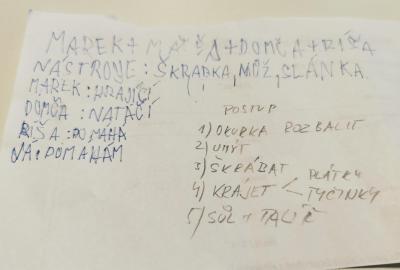 MAREK + MÁŠA + DOMČA + RÍŠA
NÁSTROJE: ŠKRABKA, NŮŽ, SLÁNKA
MAREK: HRAJÍCÍ
DOMČA: NATÁČÍ
RÍŠA: POMAHÁ
JÁ: POMAHÁM
POSTUP
1) OKURKA ROZBALIT
2) UMÝT
3) ŠKRÁBAT
4) KRÁJET < PLÁTKY
TYČINKY
5) SŮL + TALÍŘ